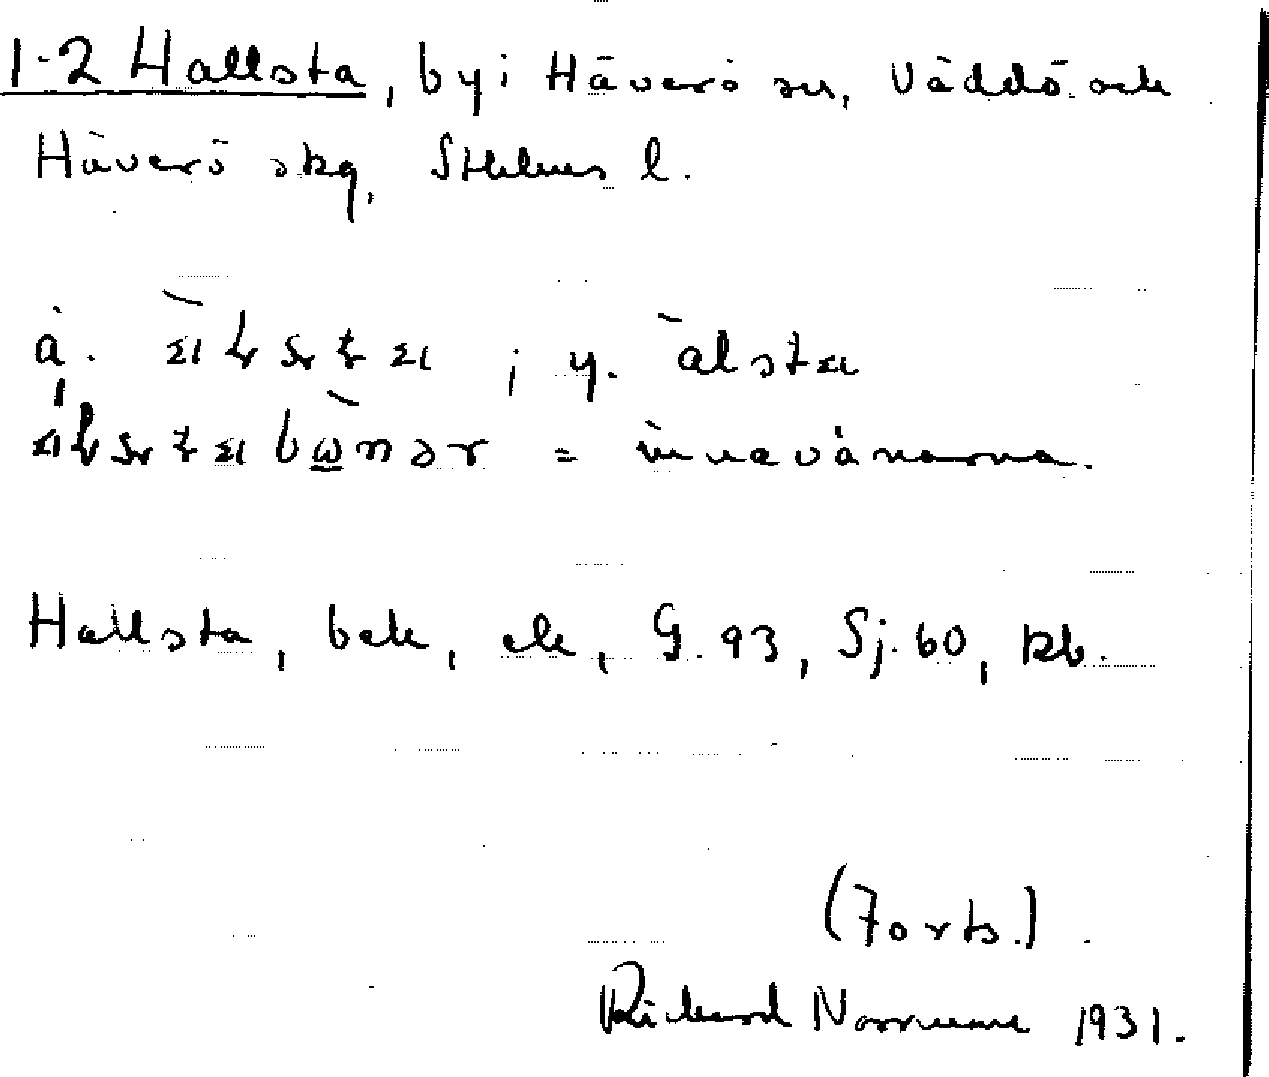 1-2 Hallsta, by i Häverö sn, Väddö och
Häverö skg, Sthlms l.
ä. ; y. alsta
= innevånarna.
Hallsta, bek, ek, G. 93, Sj. 60, kb.
(Forts.).
Rickard Norrman 1931.